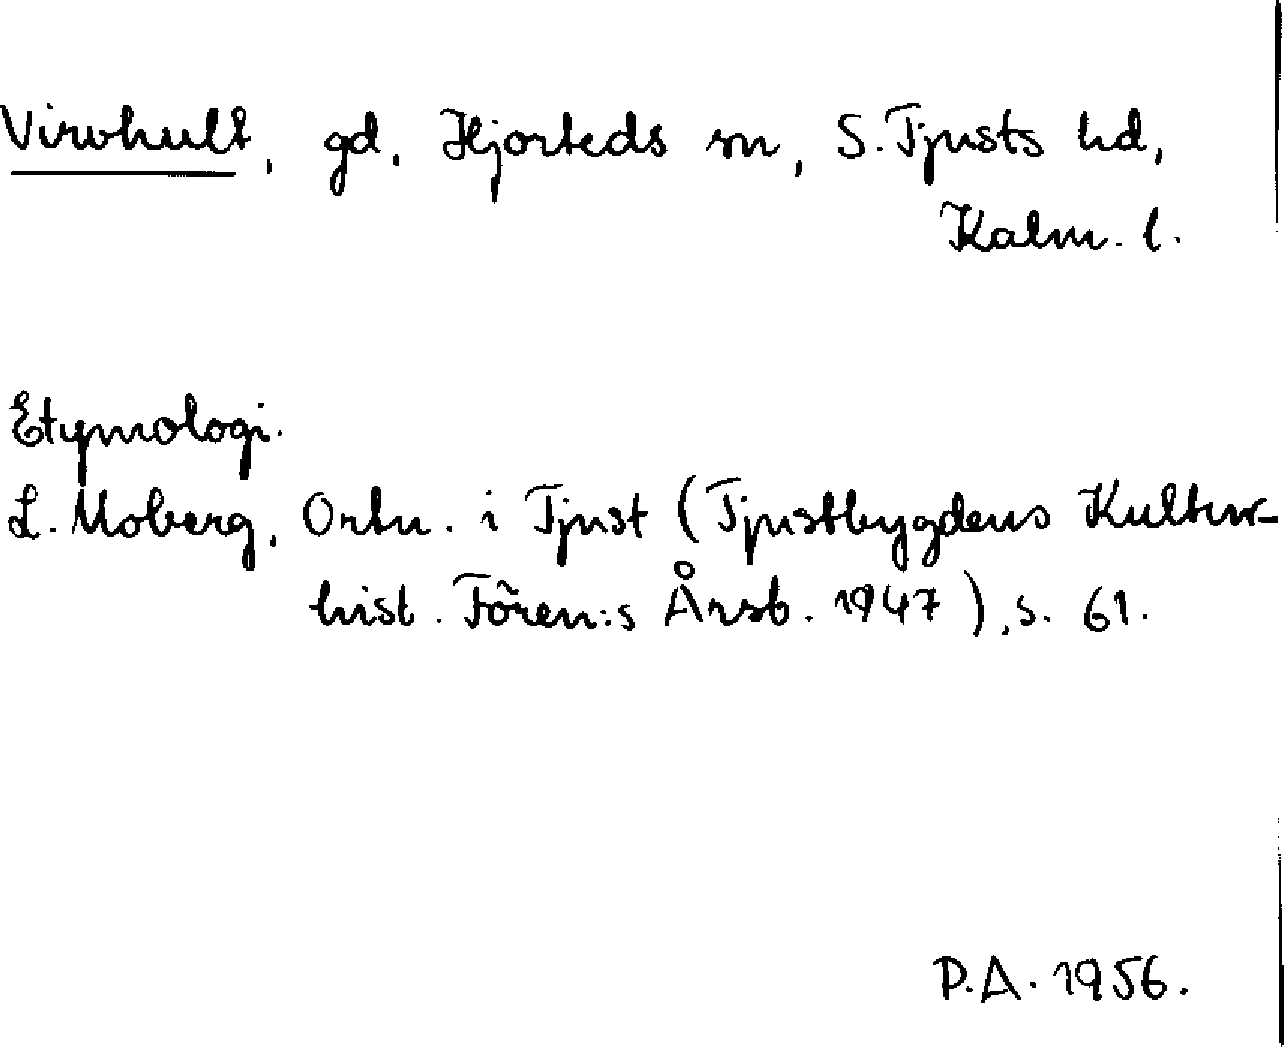 Virohult, gd, Hjorteds sn, S. Tjusts hd,
Kalm. l.
Etymologi.
L. Moberg, Ortn. i Tjust (Tjustbygdens Kultur-
hist. Fören:s Årsb. 1947), s. 61.
P.A. 1956.